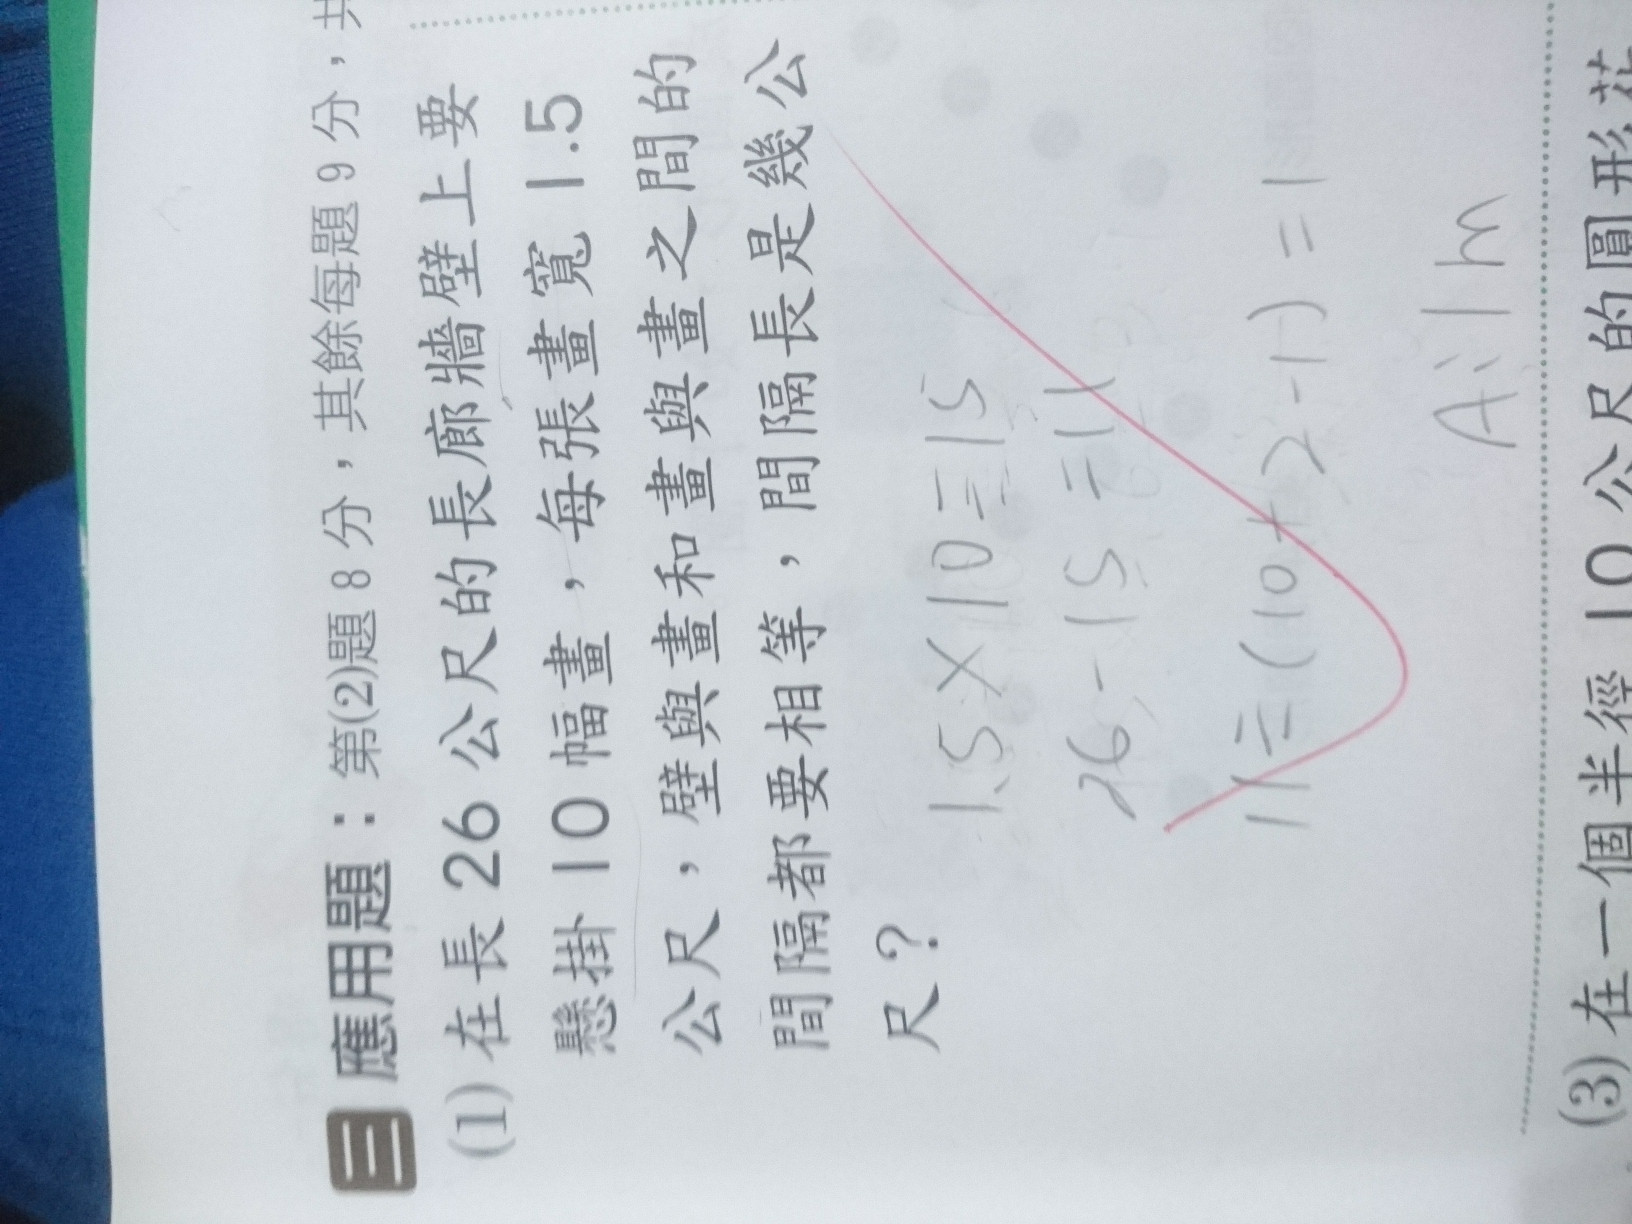 三 應用題：第(2)題 8 分，其餘每題 9 分，共
(1) 在長 26 公尺的長廊牆壁上要
懸掛 10 幅畫，每張畫寬 1.5
公尺，壁與畫和畫與畫之間的
間隔都要相等，間隔長是幾公
尺？
1.5×10=15
26-15=11
11÷(10+2-1)=1
A:1m
(3) 在一個半徑 10 公尺的圓形花